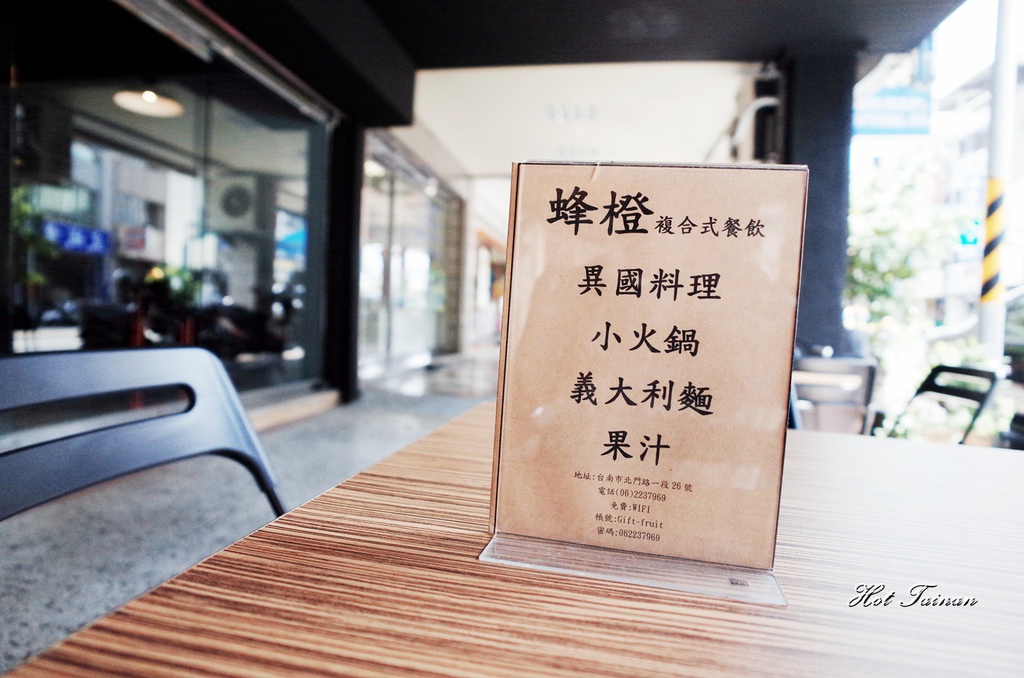 蜂橙複合式餐飲
異國料理
小火鍋
義大利麵
果汁
地址:台南市北門路一段26號
電話(06)2237969
免費:WIFI
帳號:Gift-fruit
密碼:062237969
Hot Tainan